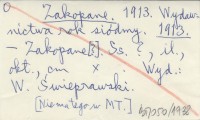 Zakopane. 1913. Wydaw-
nictwa rok siódmy. 1913.
– Zakopane[?]. Ss. ?, il.,
okt., cm × Wyd.:
W. Świeprawski.
[Niema tego w M.T.]
/1938